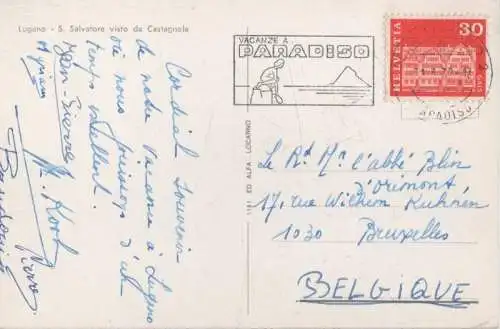 Lugano - S. Salvatore visto da Castagnola
Cordial Souvenir
de notre Vacance à Lugano
où nous jouissons d'un
temps excellent.
Jean-Pierre
M. Kort
Pierre
1181 ED ALFA LOCARNO
VACANZE A
PARADISO
HELVETIA
30
GAIS
PARADISO
Le Rd Mr l'abbé Blin
D'orimont
17, rue Wilhem Kuhnen
1030 Bruxelles
BELGIQUE